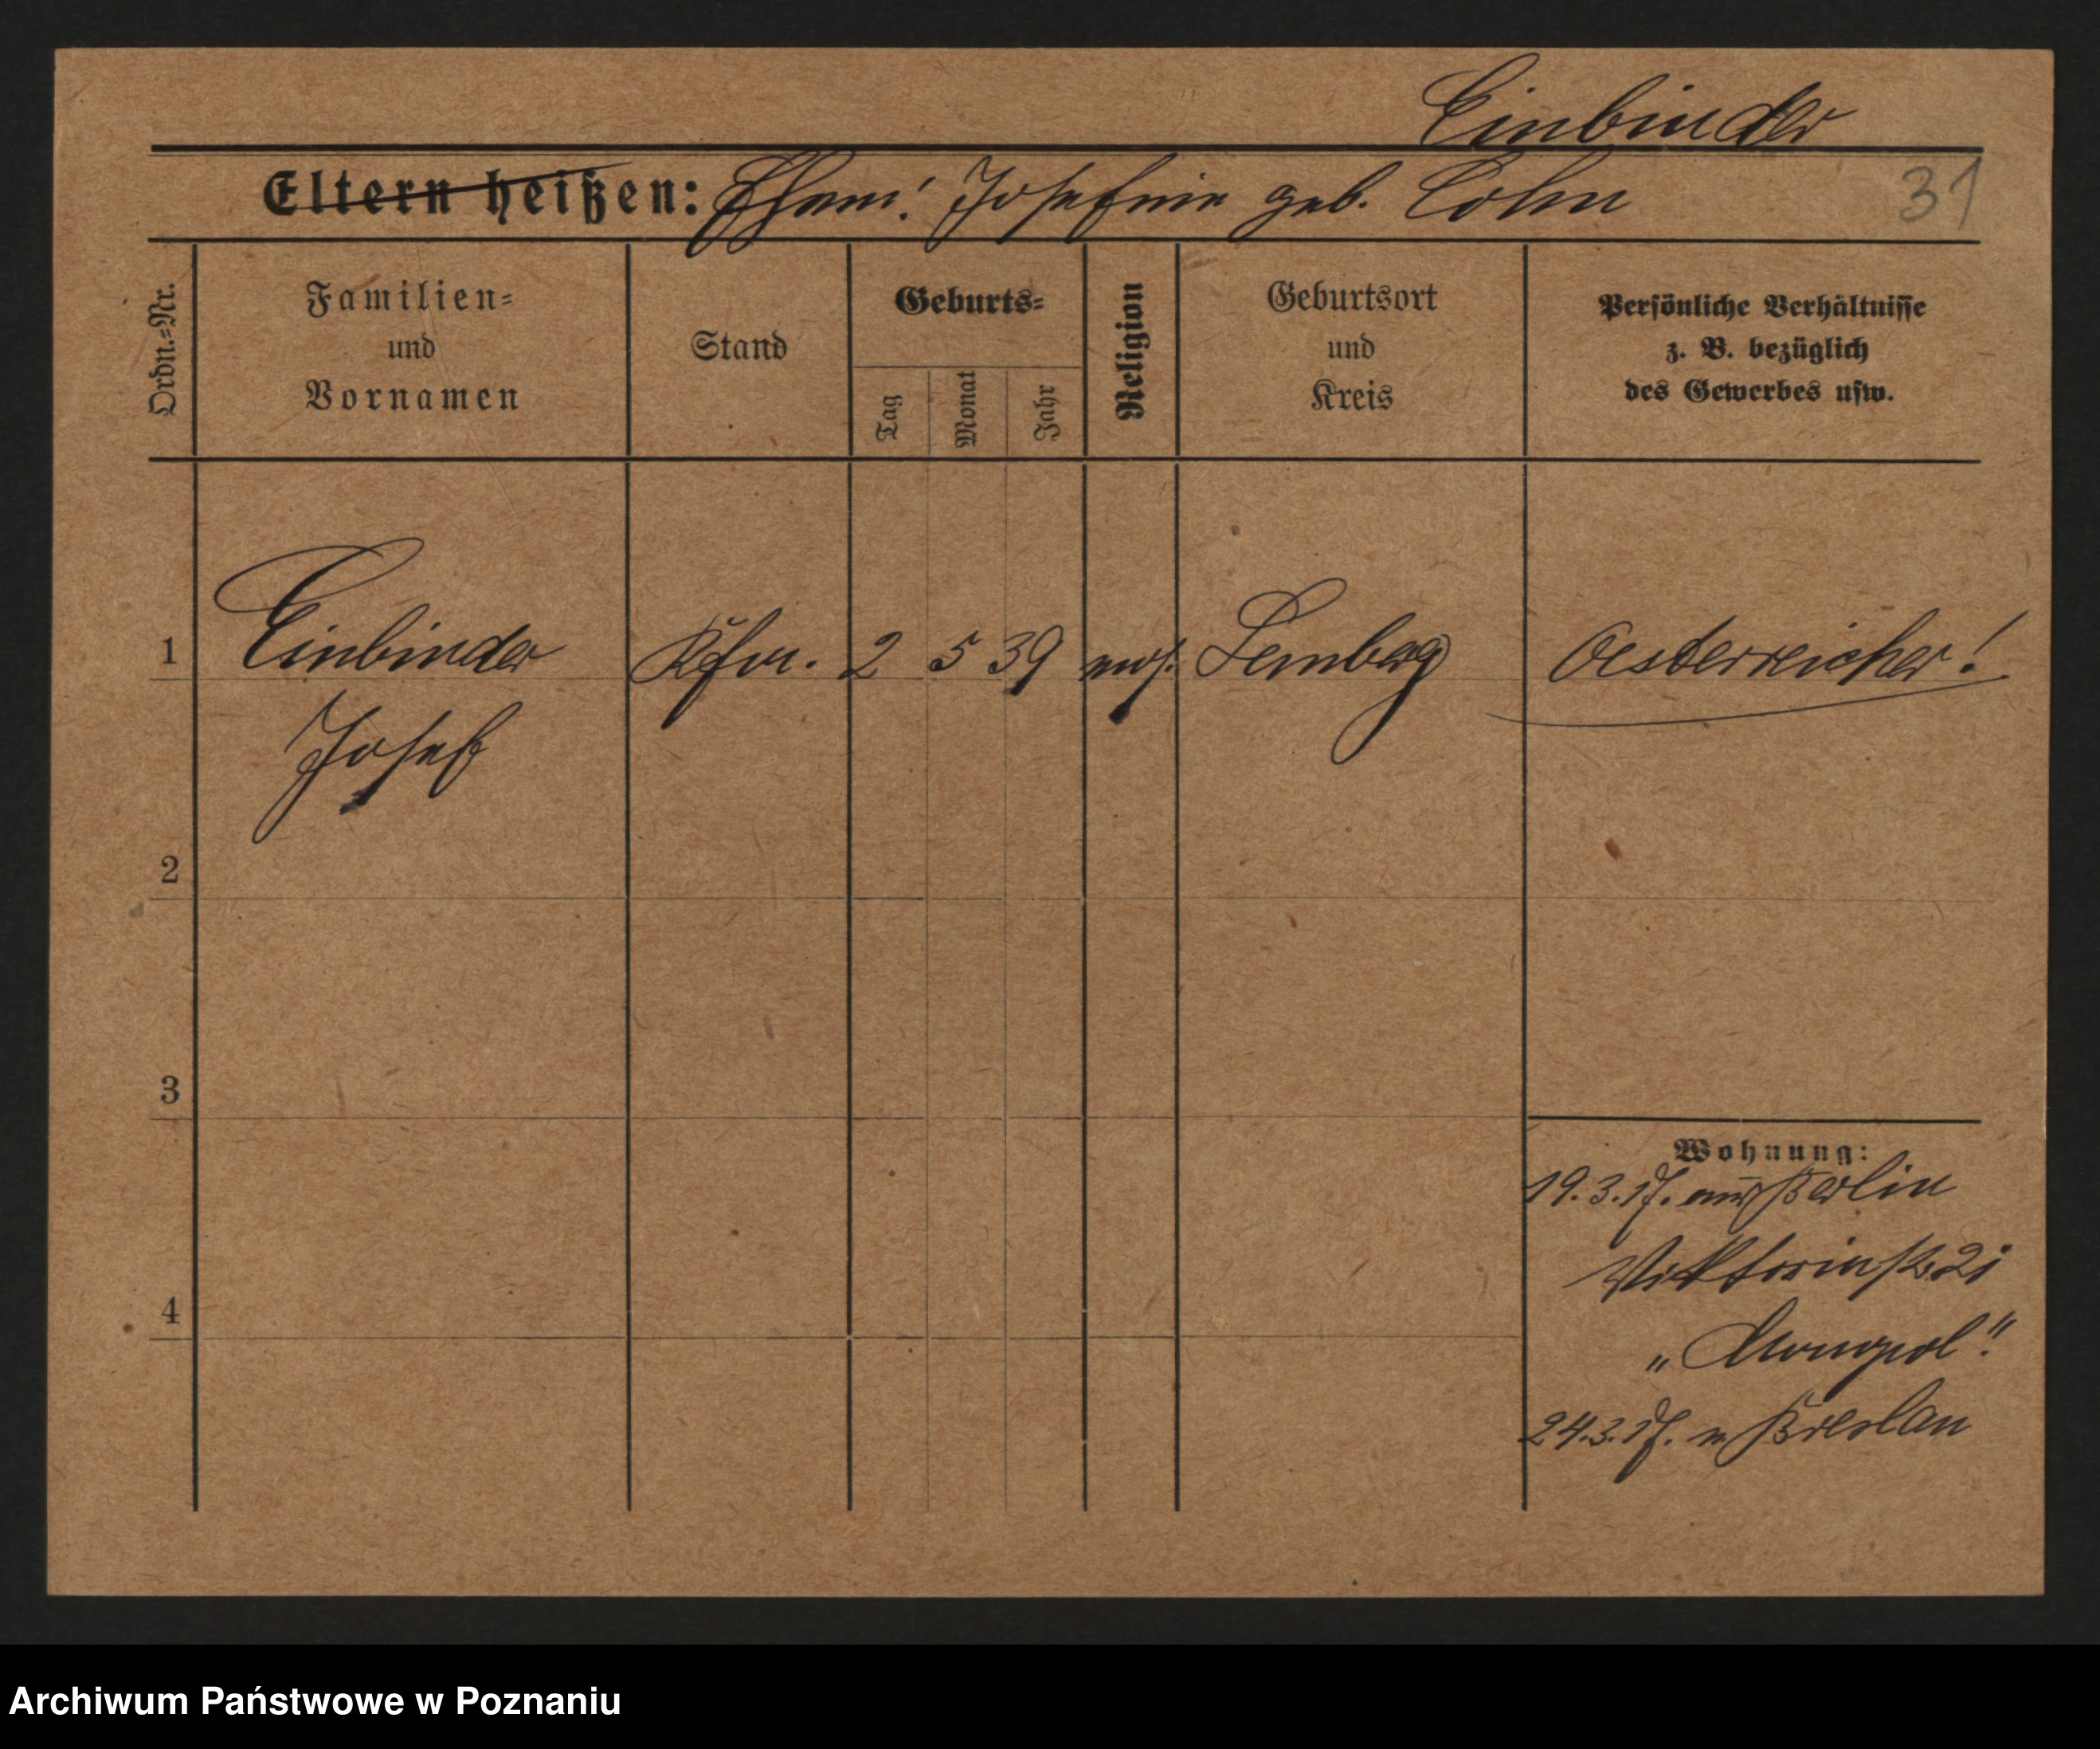 Einbinder
Eltern heißen: Ehem! Josefine geb. Cohn
31
Ordn.=Nr.
Familien=
und
Vornamen
Stand
Geburts=
Tag
Monat
Jahr
Religion
Geburtsort
und
Kreis
Persönliche Verhältnisse
z. B. bezüglich
des Gewerbes usw.
1 Einbinder Kfm. 2 5 39 mos. Lemberg Oesterreicher!
Josef
2
3
Wohnung:
19.3. aus Berlin
Viktoriastr.
4
„Monopol"
24.3. n Breslau
Archiwum Państwowe w Poznaniu